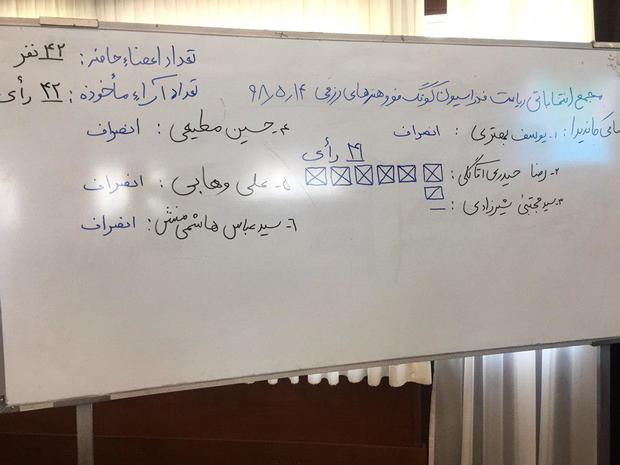 مجمع انتخاباتی ریاست فدراسیون کونگ فو و هنرهای رزمی ۹۸٫۵٫۱۴
تعداد اعضاء حاضر: ۴۲ نفر
تعداد آراء مأخوذه: ۴۲ رأی
اسامی کاندیدا: ۱- یوسف بهتری: انصراف
۲- رضا حیدری اتانگلی:
۴۱ رأی
۳- سید مجتبی شیرزادی:
۴- حسین مطیعی: انصراف
۵- علی وهابی: انصراف
۶- سید عباس هاشمی منش: انصراف